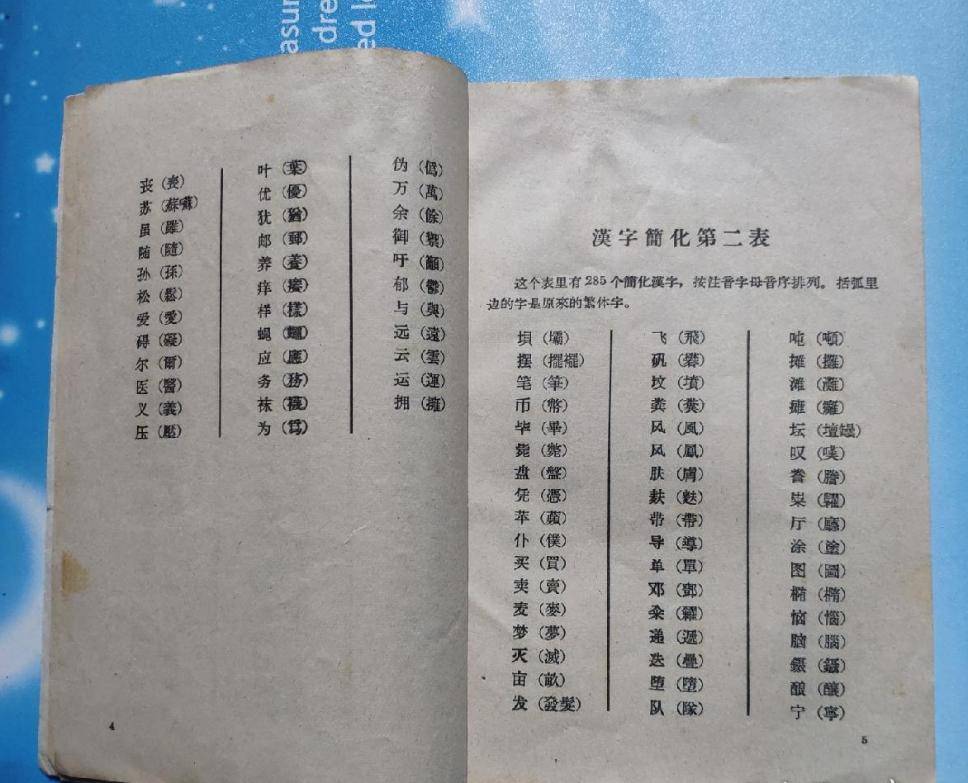 asur
dre
ed l
丧（喪）
苏（蘇囌）
虽（雖）
随（隨）
孙（孫）
松（鬆）
爱（愛）
碍（礙）
尔（爾）
医（醫）
义（義）
压（壓）
叶（葉）
优（優）
犹（猶）
邮（郵）
养（養）
痒（癢）
样（樣）
蝇（蠅）
应（應）
务（務）
袜（襪）
为（爲）
伪（僞）
万（萬）
余（餘）
御（禦）
吁（籲）
郁（鬱）
与（與）
远（遠）
云（雲）
运（運）
拥（擁）
4
漢字簡化第二表
这个表里有285个簡化漢字，按注音字母音序排列。括弧里
边的字是原來的繁体字。
垻（壩）
摆（擺襬）
笔（筆）
币（幣）
毕（畢）
毙（斃）
盘（盤）
凭（憑）
苹（蘋）
仆（僕）
买（買）
卖（賣）
麦（麥）
梦（夢）
灭（滅）
亩（畝）
发（發髮）
飞（飛）
矾（礬）
坟（墳）
粪（糞）
风（風）
凤（鳳）
肤（膚）
麸（麩）
带（帶）
导（導）
单（單）
邓（鄧）
籴（糴）
递（遞）
迭（疊）
堕（墮）
队（隊）
吨（噸）
摊（攤）
滩（灘）
瘫（癱）
坛（壇罎）
叹（嘆）
誊（謄）
粜（糶）
厅（廳）
涂（塗）
图（圖）
椭（橢）
恼（惱）
脑（腦）
镊（鑷）
酿（釀）
宁（寧）
5